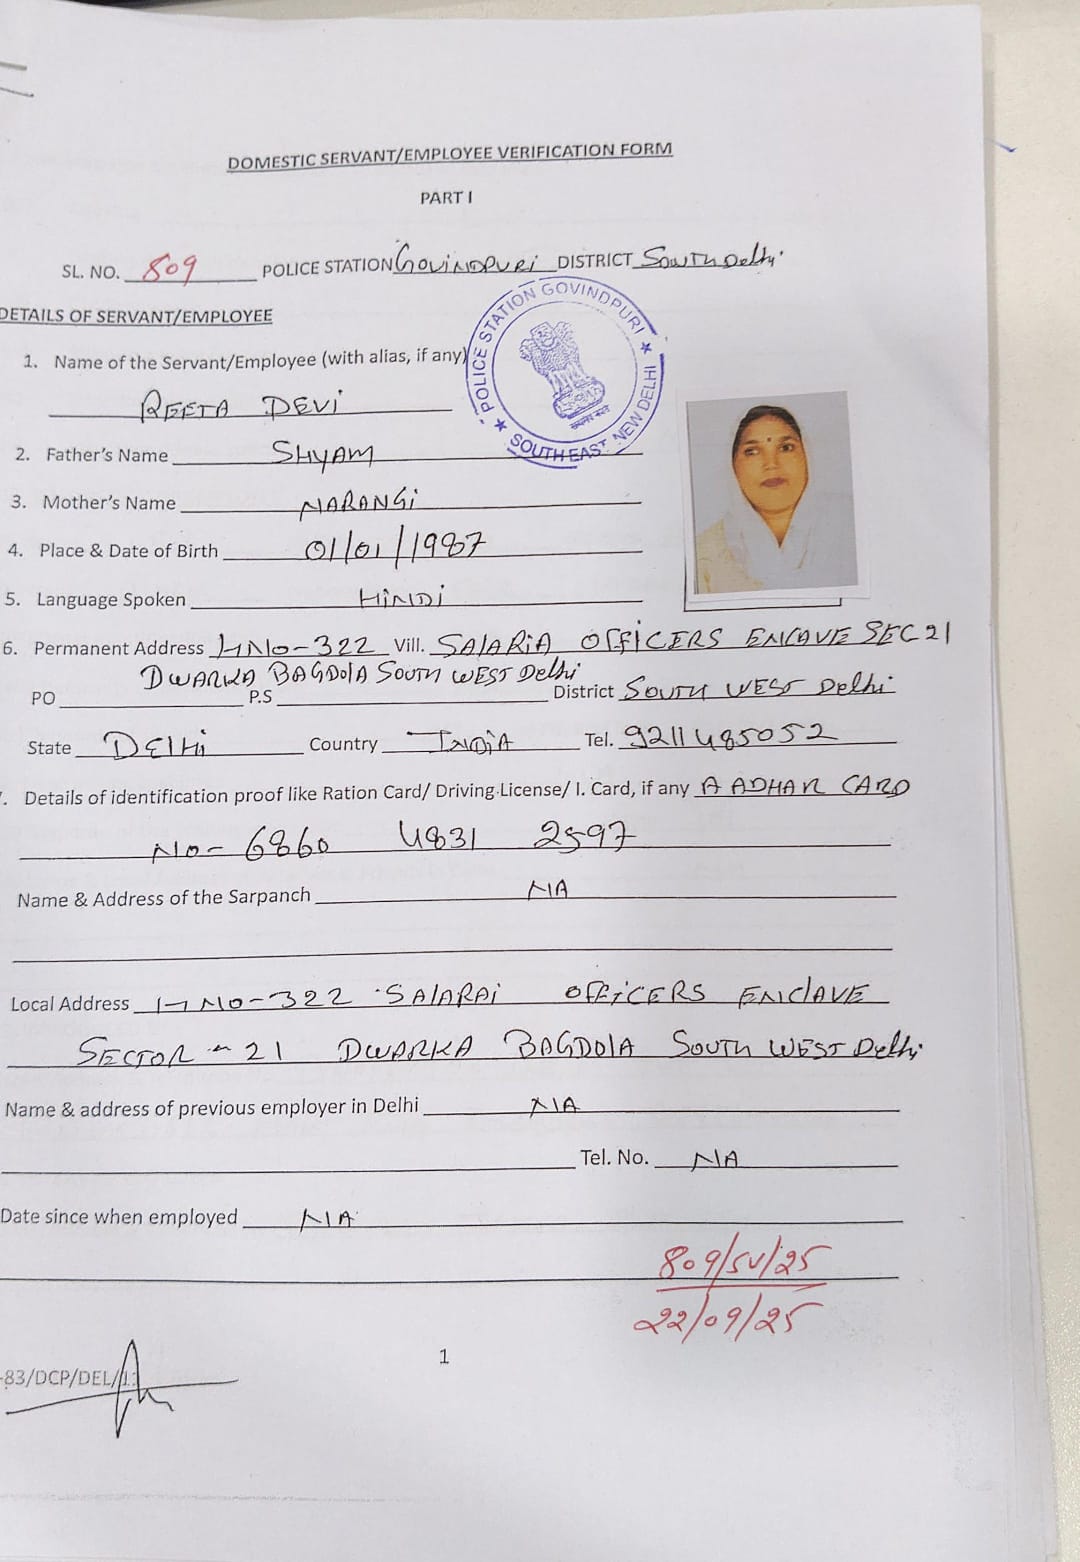 DOMESTIC SERVANT/EMPLOYEE VERIFICATION FORM
PART I
SL. NO. 809 POLICE STATION GOVINDPURI DISTRICT SOUTH Delhi
DETAILS OF SERVANT/EMPLOYEE
★ POLICE STATION GOVINDPURI ★ SOUTH EAST NEW DELHI
1. Name of the Servant/Employee (with alias, if any)
REETA DEVI
2. Father's Name SHYAM
3. Mother's Name NARANGI
4. Place & Date of Birth 01/01/1987
5. Language Spoken HINDI
6. Permanent Address HNO-322 Vill. SALARIA OFFICERS ENCAVE SEC 21
DWARKA BAGDOLA SOUTH WEST Delhi
PO P.S District SOUTH WEST Delhi
State DELHI Country INDIA Tel. 9211485052
7. Details of identification proof like Ration Card/ Driving License/ I. Card, if any AADHAR CARD
NO- 6860 4831 2597
Name & Address of the Sarpanch NA
Local Address HNO-322 SALARAI OFFICERS ENCLAVE
SECTOR - 21 DWARKA BAGDOLA SOUTH WEST Delhi
Name & address of previous employer in Delhi NA
Tel. No. NA
Date since when employed NA
809/SV/25
22/09/25
1
-83/DCP/DEL/